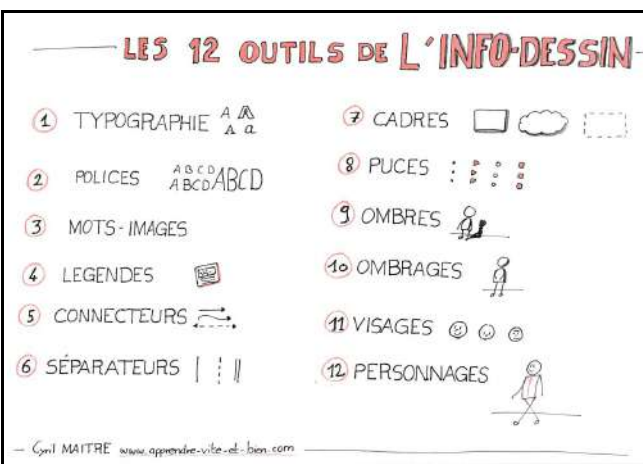 LES 12 OUTILS DE L'INFO-DESSIN
1 TYPOGRAPHIE A A A a
2 POLICES ABCD ABCD ABCD
3 MOTS-IMAGES
4 LEGENDES
5 CONNECTEURS
6 SÉPARATEURS
7 CADRES
8 PUCES
9 OMBRES
10 OMBRAGES
11 VISAGES
12 PERSONNAGES
Cyril MAITRE www.apprendre-vite-et-bien.com